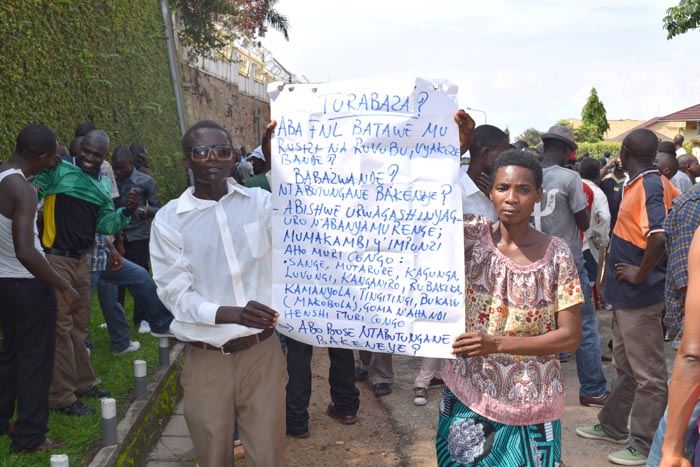 TURABAZA?
ABA FNL BATAWE MU
RUSIZI NA RUVUBU, VYAKEZE
BANDE?
BABAZWANDE?
NTABUTUNGANE BAKENEYE?
- ABISHWE URWAGASHINYAG_
URO N'ABANYAMURENGE;
MUMAKAMBI Y'IMPUNZI
AHO MURI CONGO:
- SANGE, MUTARURE, KAGUNGA,
LUVUNGI, KANGANIRO, RUBAKIKA
KAMANYOLA, TINGITINGI, BUKAVU
(MAKOBOLA), GOMA N'AHANDI
HENSHI MURI CONGO
→ ABO BOSE NTABUTUNGANE
BAKENEYE?